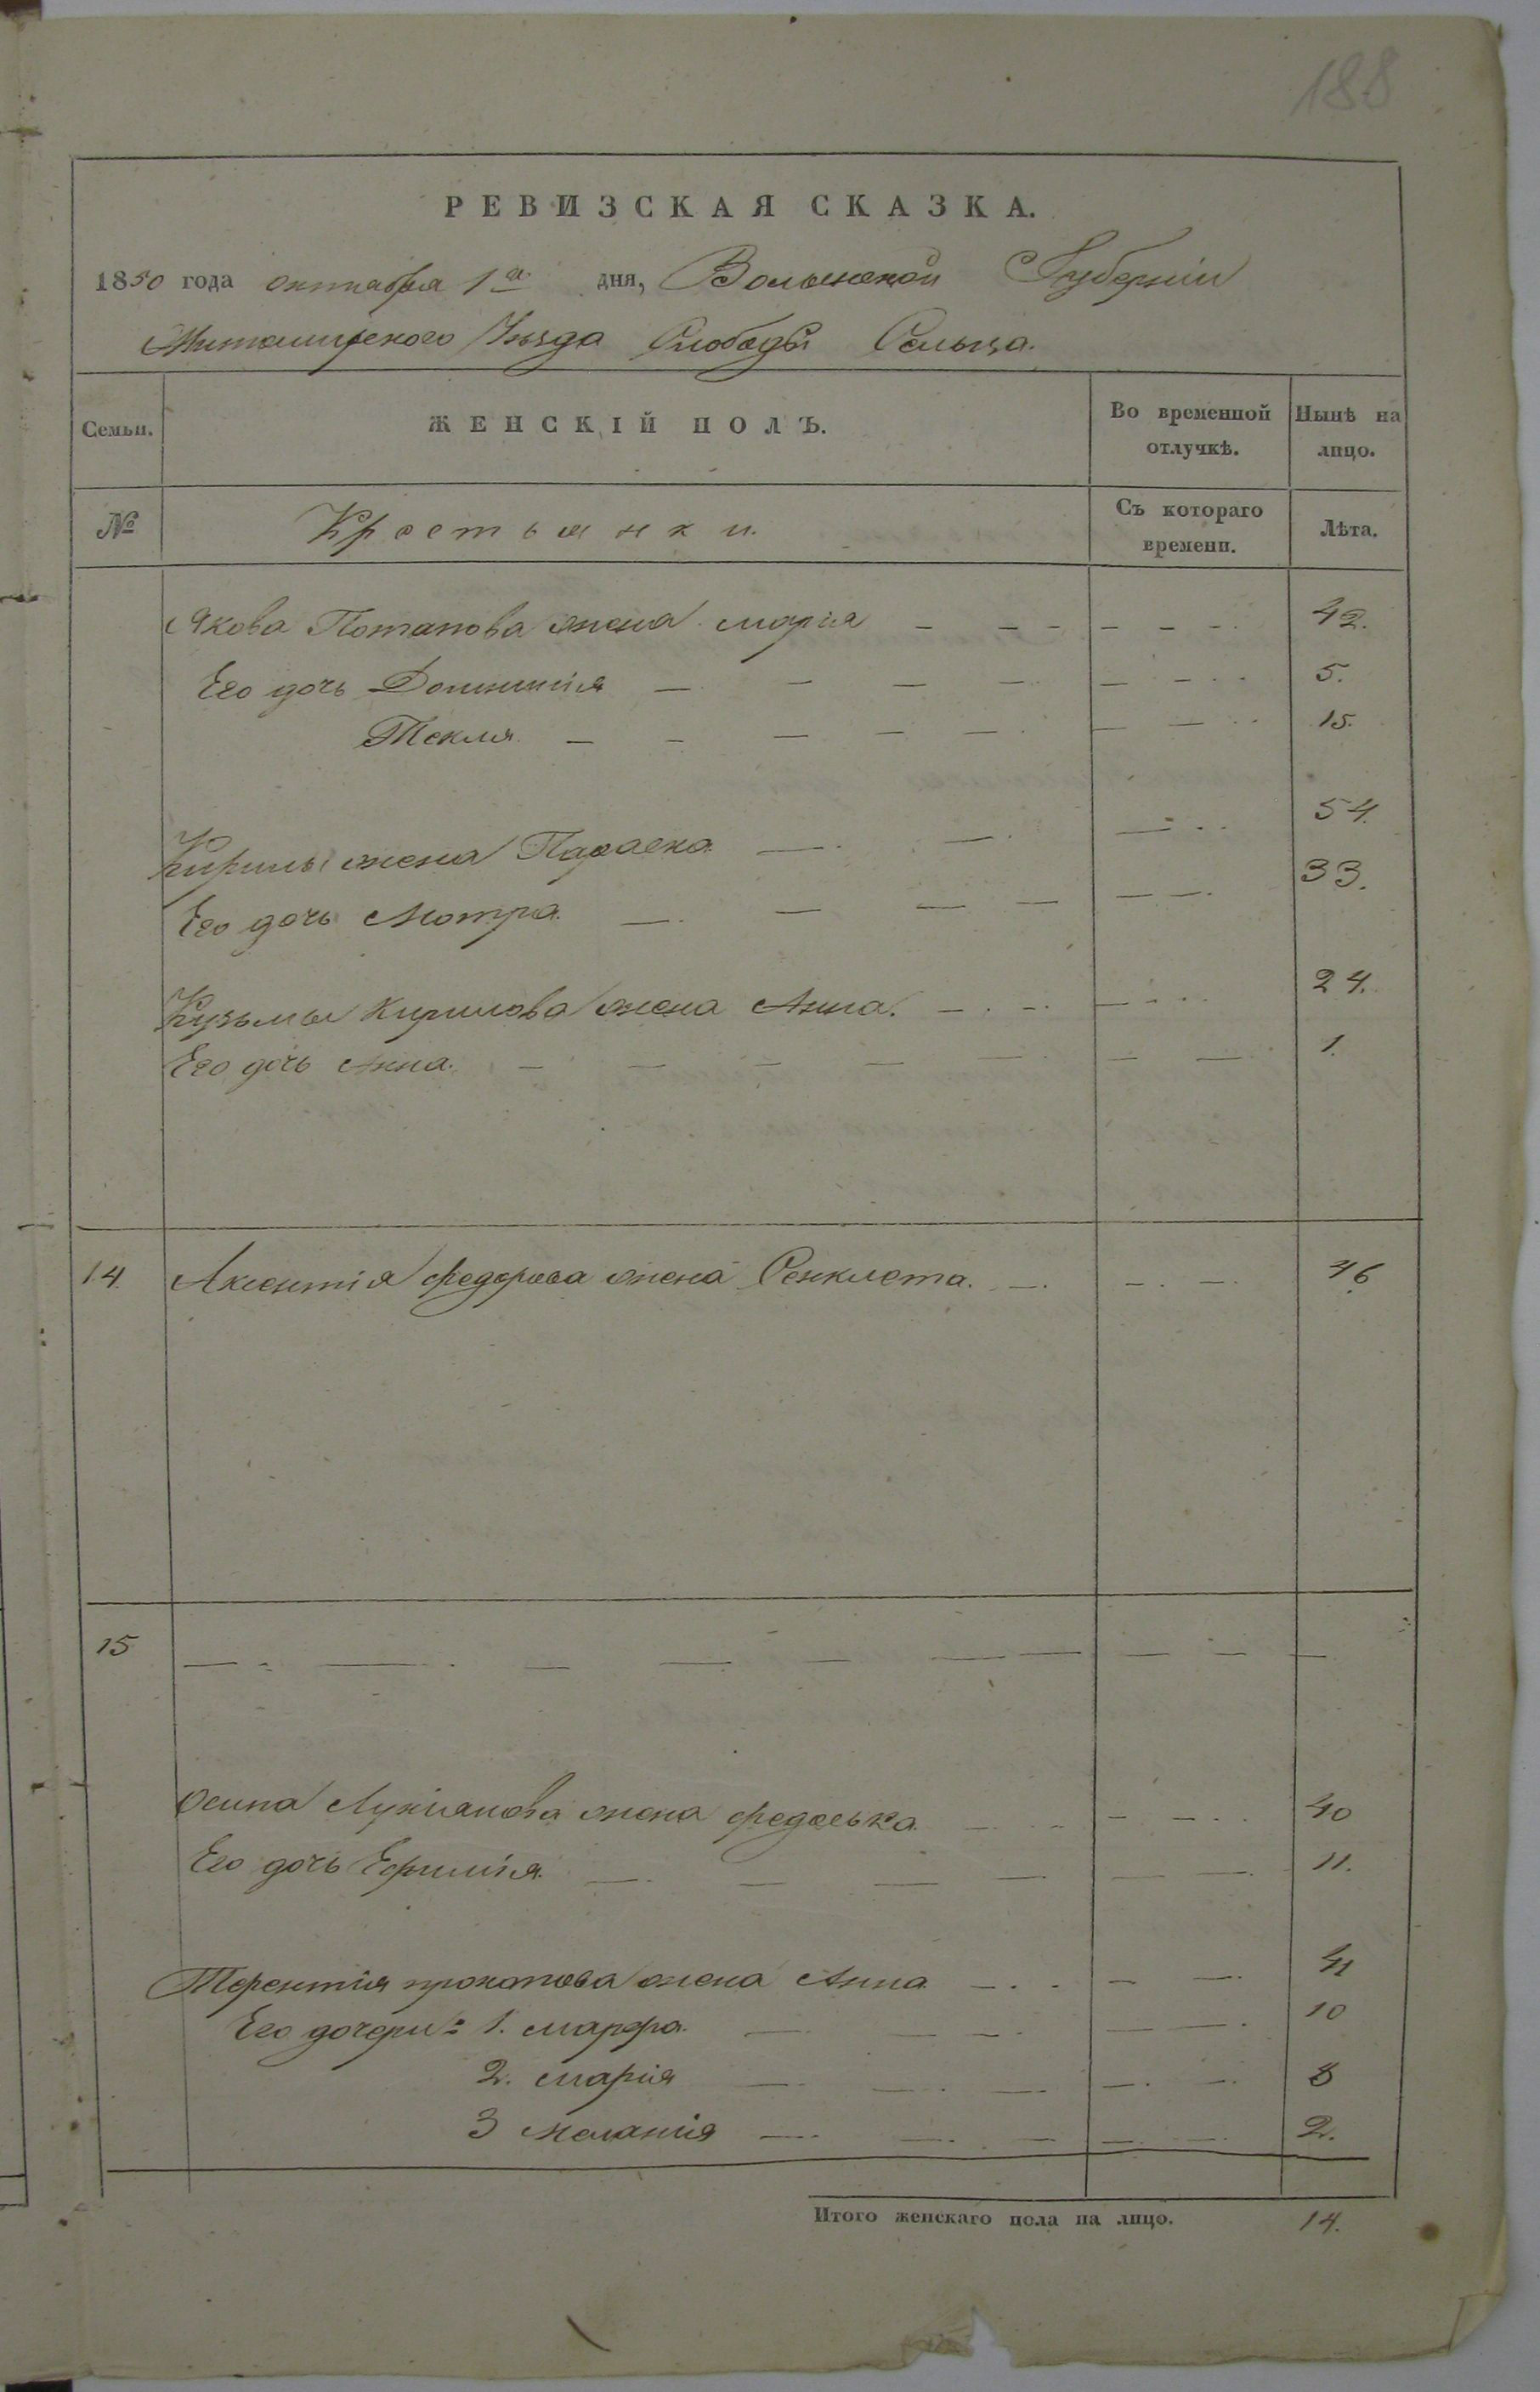 188
РЕВИЗСКАЯ СКАЗКА.
1850 года октября 1го дня, Волынской Губернии
Житомирского Уѣзда Слободы Сельца.
Семьи. ЖЕНСКІЙ ПОЛЪ. Во временной отлучкѣ. Нынѣ на лицо.
№ Крестьянки. Съ котораго времени. Лѣта.
Якова Потапова жена марія — — — — — — 42.
Его дочь Домникія — — — — — — 5.
Текля — — — — — — — 15.
Кирилы жена Параска — — — 54.
Его дочь Мотра — — — — — — 33.
Кузьмы Кирилова жена Анна. — — — 24.
Его дочь Анна. — — — — — — — 1.
14 Аксентія федорова жена Фекклета. — — — 46
15 — — — — — — — — — —
Осипа Лукіанова жена федоська — — — — 40
Его дочь Ефимія. — — — — — — 11.
Терентія прокопова жена Анна — — — 41
Его дочери: 1. марфа. — — — — — 10
2. марія — — — — — 8
3 меланія — — — — — 2.
Итого женскаго пола на лицо. 14.